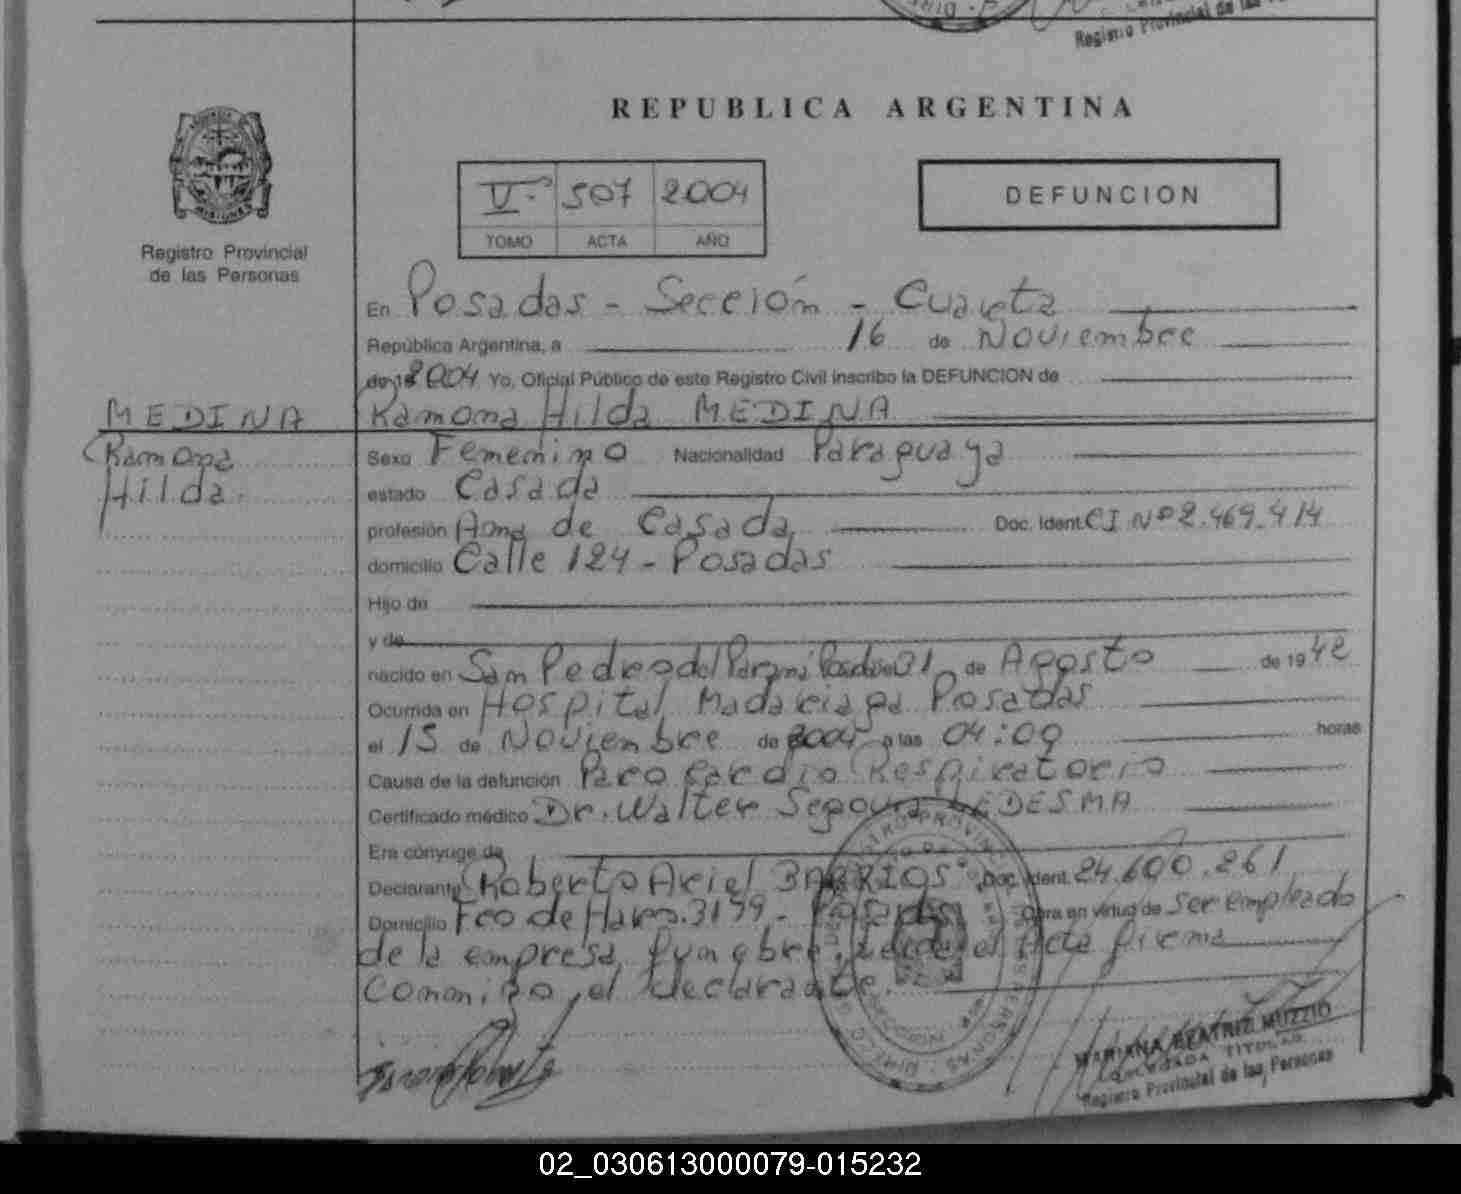 Registro Provincial de las
REPUBLICA ARGENTINA
MISIONES
Registro Provincial
de las Personas
V 507 2004
TOMO ACTA AÑO
DEFUNCION
En Posadas - Sección - Cuarta
República Argentina, a 16 de Noviembre
de 2004 Yo, Oficial Público de este Registro Civil inscribo la DEFUNCION de
MEDINA
Ramona
Hilda
Ramona Hilda MEDINA
Sexo Femenino Nacionalidad Paraguaya
estado Casada
profesión Ama de Casada Doc. Ident. CI Nº 2.469.414
domicilio Calle 124 - Posadas
Hijo de
y de
nacido en San Pedro del Paraná 31 de Agosto de 1942
Ocurrida en Hospital Madariaga Posadas
el 15 de Noviembre de 2004 a las 04:00 horas
Causa de la defunción Paro Cardio Respiratorio
Certificado médico Dr. Walter Segovia LEDESMA
Era cónyuge de
Declarante Roberto Ariel BARRIOS Doc. Ident. 24.600.261
Domicilio Fco de Haro 3199 - Posadas Obra en virtud de ser empleado
de la empresa funebre, el Acta firma
Conmigo, el declarante.
MARIANA BEATRIZ MUZZIO
Registro Provincial de las Personas
02_030613000079-015232